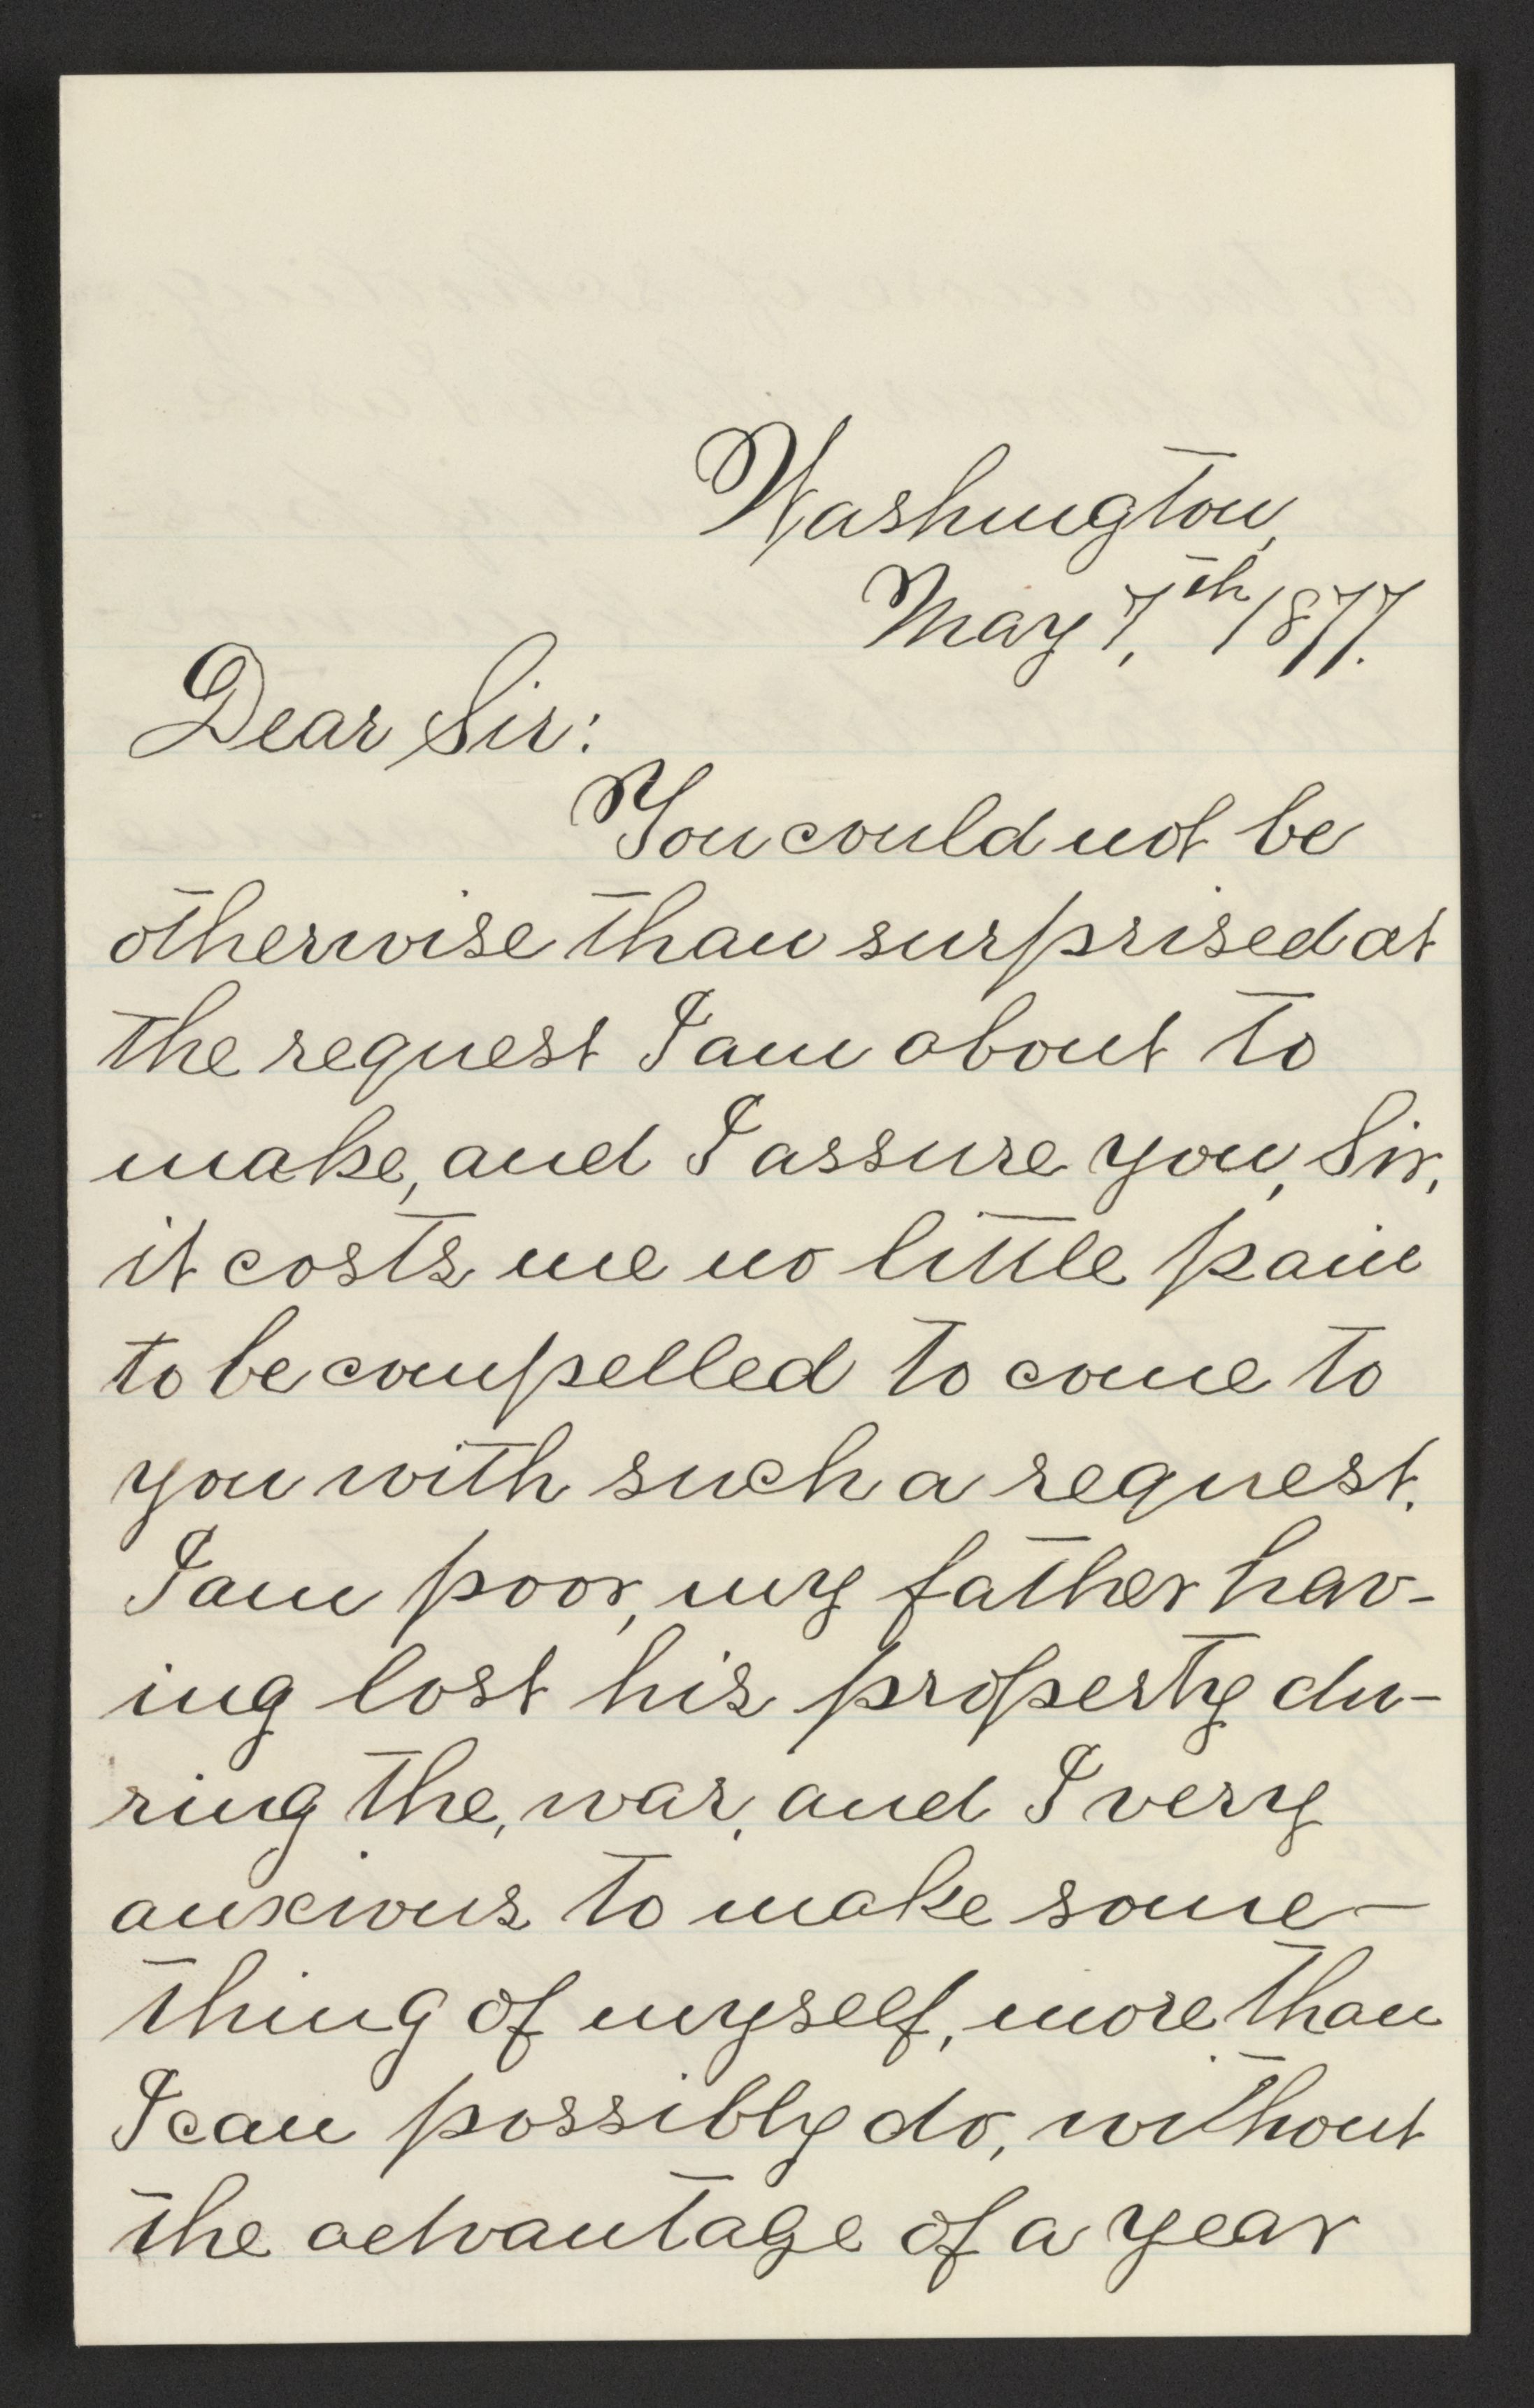 Washington,
May 7,th 1877.
Dear Sir:
You could not be
otherwise than surprised at
the request I am about to
make, and I assure you, Sir,
it costs me no little pain
to be compelled to come to
you with such a request.
I am poor, my father hav-
ing lost his property du-
ring the, war, and I very
anxious to make some-
thing of myself, more than
I can possibly do, without
the advantage of a year